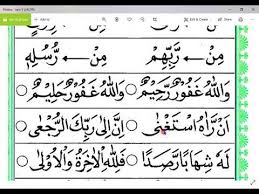 مِنْ ← رَّبِّهِمْ مِنْ ← رَّسُلِهِ
وَاللهُ غَفُورٌ رَّحِيمٌ وَاللهُ غَفُورٌ حَلِيمٌ
اَنْ رَّاٰهُ اسْتَغْنٰى اِنَّ اِلٰى رَبِّكَ الرُّجْعٰى
لَهٗ شِهَابًا رَّصَدًا فَلِلّٰهِ الْاٰخِرَةُ وَالْاُوْلٰى